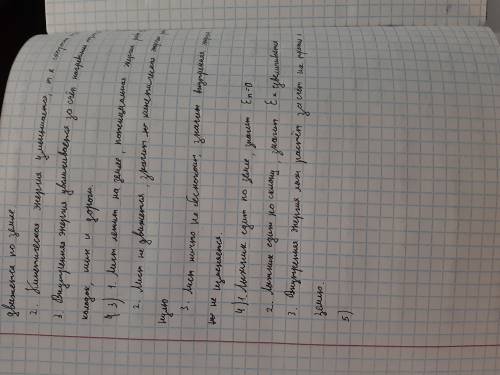 движется по земле.
2. Кинетическая энергия уменьшается, т.к. скорость
3. Внутренняя энергия увеличивается за счёт нагревания
колодок шин и дороги.
3) 1. Лист лежит на земле, потенциальная энергия
2. Лист не движется, значит по кинетическая энергия
нулю
3. Лист ничто не беспокоит, значит внутренняя
не изменяется.
4) 1. Лыжник едет по земле, значит Eп=0
2. Лыжник едет по склону, значит Eк увеличивается
3. Внутренняя энергия лыж растёт за счёт их трения
землю.
5)